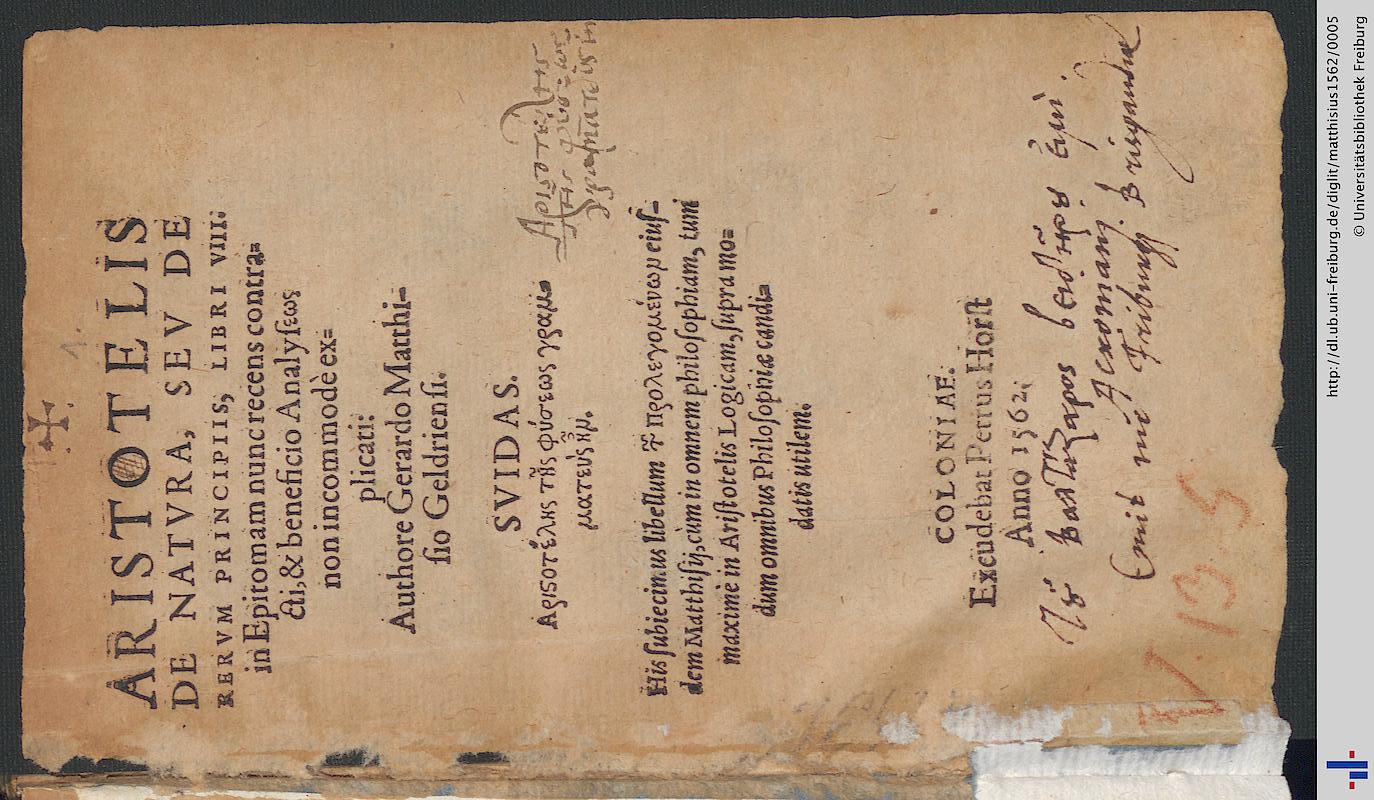 ARISTOTELIS
DE NATVRA, SEV DE
RERVM PRINCIPIIS, LIBRI VIII.
in Epitomam nunc recens contra=
cti, & beneficio Analyſεως
non incommodè ex=
plicati:
Authore Gerardo Matthi-
ſio Geldrienſi.
SVIDAS.
Αριστοτέλης τῆς φύσεως γραμ=
ματεὺς ἦν.
Αριστοτέλης
τῆς φύσεως
γραμματεὺς ἦν
His ſubiecimus libellum τῶν προλεγομένων eiuſ-
dem Matthiſij, cùm in omnem philoſophiam, tum
maximè in Ariſtotelis Logicam, ſupra mo=
dum omnibus Philoſophiæ candi=
datis utilem.
COLONIAE.
Excudebat Petrus Horſt
Anno 1562.
Βαλτάζαρος
εἰμί.
Emit me Friburgi
V. 13 5
http://dl.ub.uni-freiburg.de/diglit/matthisius1562/0005
© Universitätsbibliothek Freiburg